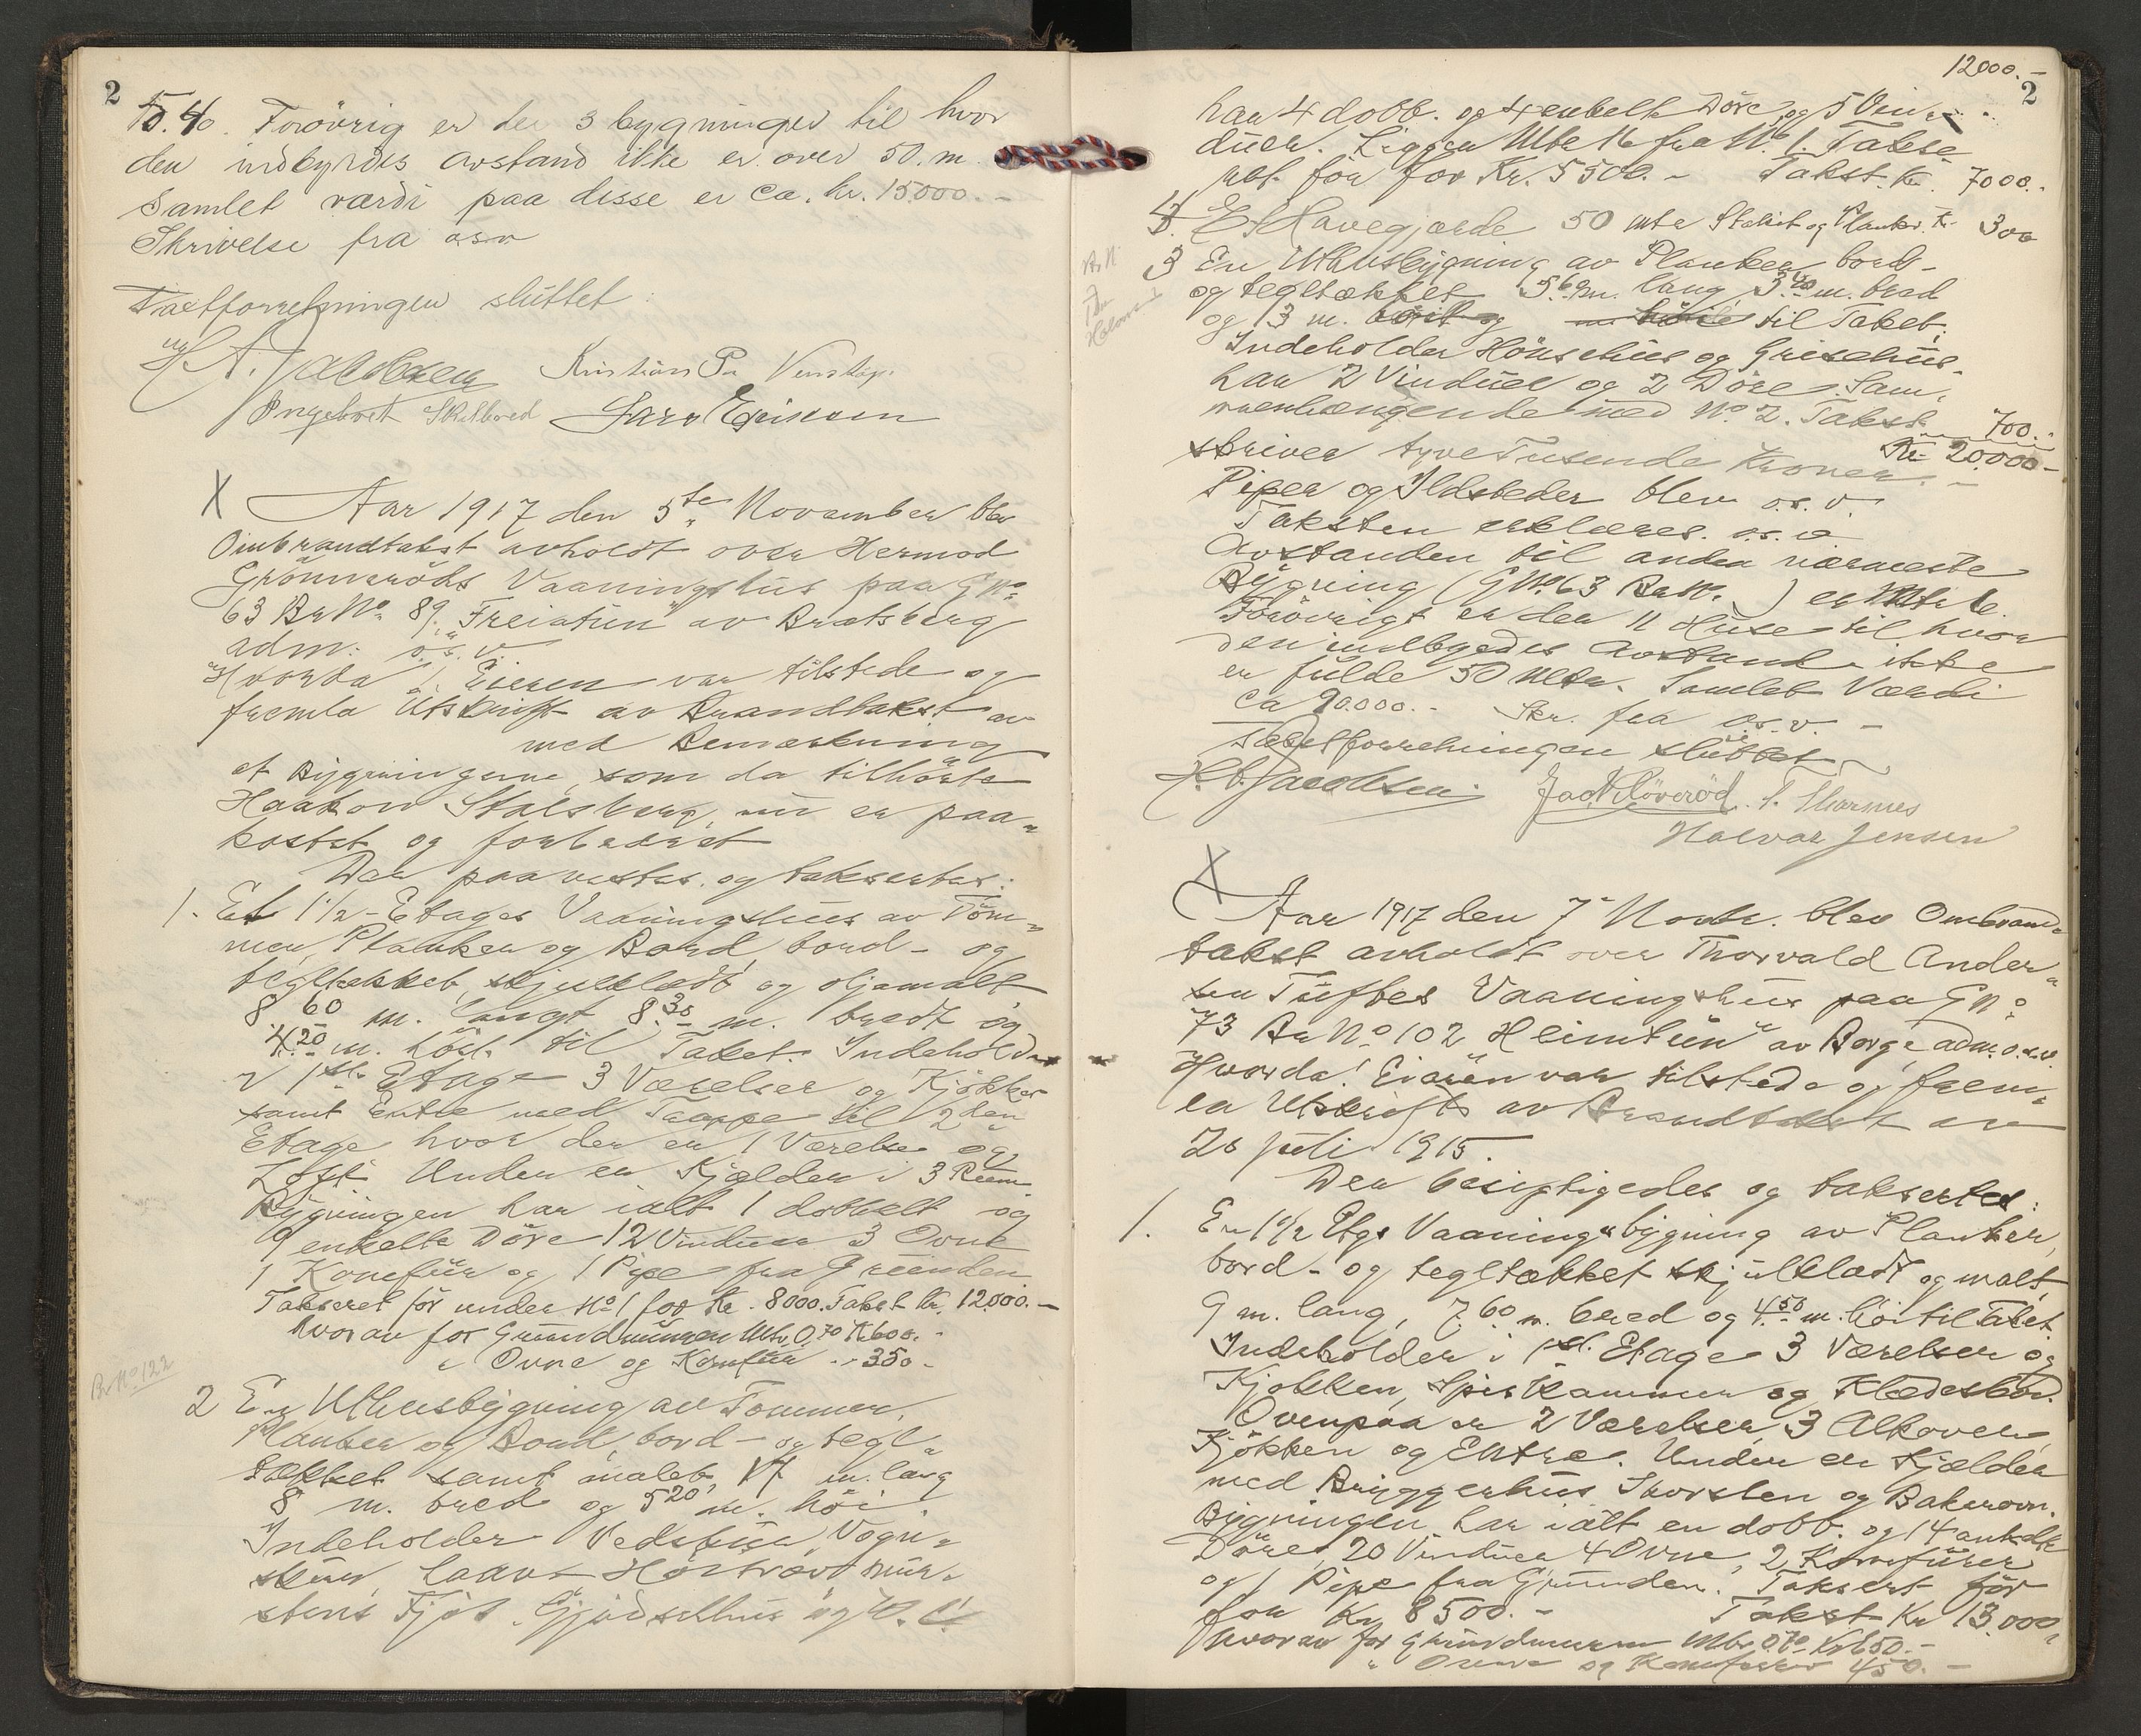 2
Forövrig er der 3 bygninger til hvor
den indbyrdes avstand ikke er over 50. m
Samlet værdi paa disse er ca. kr. 15000.-
Skrivelse fra osv
Taxtforretningen sluttet:
Jacobsen Kristian Venstöp.
Ingebret Lars Eriksen
X Aar 1917 den 5te November blev
Ombrandtakst avholdt over Hermod
Grönneröds Vaaningshus paa GNo
63 BrNo 89. „Freiatun" av Bratsberg
adm: o.s.v.
Hvorda! Eieren var tilstede og
fremla Utskrift av Brandtakst av
med Bemærkning
at Bygningerne, som da tilhörte
Haakon Stalsberg, nu er paa-
kostet og forbedret
Der paavistes og takseertes:
1. Et 1½-Etages Vaaningshus av Töm-
mer, Planker og Bord, bord- og
tegltækket, skjulklædt og oljemalt
8 60 m. langt 8.30 m. bredt og
4.20 m. höit til Taket. Indeholder
i 1ste Etage 3 Værelser og Kjökken
samt Entre med Trappe til 2den
Etage hvor der er 1 Værelse og
Loft. Under er Kjælder i 3 Rum
Bygningen har ialt 1 dobbelt og
9 enkelte Döre 12 Vinduer 3 Ovne
1 Komfur og 1 Pipe fra Grunden
Takseret för under No 1 for Kr. 8000. Takst Kr. 12.000.-
hvorav for Grundmuren Mtr. 0.70 K 600.-
" Ovne og Komfur .. 350-
Br No 122
2 En Uthusbygning av Tömmer,
Planker og Bord, bord- og tegl-
tækket samt malet, 17 m. lang
8 m. bred og 5 20 m. höi.
Indeholder Vedskur, Vogn-
skur, Laave Höitrov mur-
stens Fjös, Gjödselhus og W.C.
12000.-
2
har 4 dobb. og 4 enkelte Döre, og 5 Vin-
duer. Ligger Mtr 16 fra No 1. Takse-
ret för for Kr. 5500.- Takst. Kr. 7000.-
4. Et Havegjærde 50 mtr Stakit og Planker. Kr 300
3 En Uthusbygning av Planker bord-
og tegltækket 5.60 m. lang 3.40 m. bred
og 3 m. til Taket.
Indeholder Hönsehus og Grisehus-
har 2 Vinduer og 2 Döre. Sam-
menhængende med No 2. Takst 700.-
Kr 20.000-
skriver tyve Tusende Kroner.-
Piper og Ildsteder blev o.s.v.
Taksten erklæres. o.s.v.
Avstanden til anden nærmeste
Bygning (GNo 63 BrNo. ) er Mtr
Forövrigt er der 11 Huse til hvor
den indbyrdes Avstand ikke
er fulde 50 Mtr. Samlet Værdi
Ca 90.000.- Skr. fra o.s.v.-
Takstforretningen sluttet
Jacobsen Jac Klöveröd. T. Tharmes
Halvor Jensen
X
Aar 1917 den 7de Novbr. blev Ombrand-
takst avholdt over Thorvald Ander-
sen Tuftes Vaaningshus paa GNo
73 BrNo 102 Heimtun" av Borge adm. o.s.v.
Hvorda! Eieren var tilstede og frem-
la Utskrift av Brandtakst av
26 Juli 1915.
Der besigtigedes og takseertes:
1. En 1½ Etgs Vaaningsbygning av Planker,
bord- og tegltækket skjulklædt og malt,
9 m. lang, 7.60 m. bred og 4.50 m. höi til Taket.
Indeholder i 1st. Etage 3 Værelser og
Kjökken, Spiskammer og Klædesbod.
Ovenpaa er 2 Værelser, 3 Alkover
Kjökken og Entre. Under er Kjælder
med Bryggerhus Skorsten og Bakerovn.
Bygningen har ialt en dobb. og 14 enkelte
Döre, 20 Vinduer 4 Ovne, 2 Komfurer
og 1 Pipe fra Grunden. Taksert för
for Kr 8500.- Takst Kr 13.000.
hvorav for Grundmuren Mtr 0.70 Kr 650.-
" Ovne og Komfurer 450.-